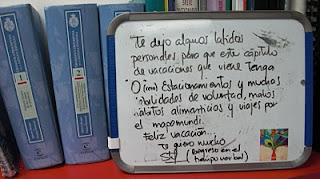 1
2
ESPASA
Te dejo algunos latidos
personales para que este capítulo
de vacaciones que viene tenga
0 (cero) Estacionamientos y muchos
de voluntad, malos
hábitos alimenticios y viajes por
el mapamundi.
Feliz vacación...
Te quiero mucho
(regreso en el
tiempo verbal)